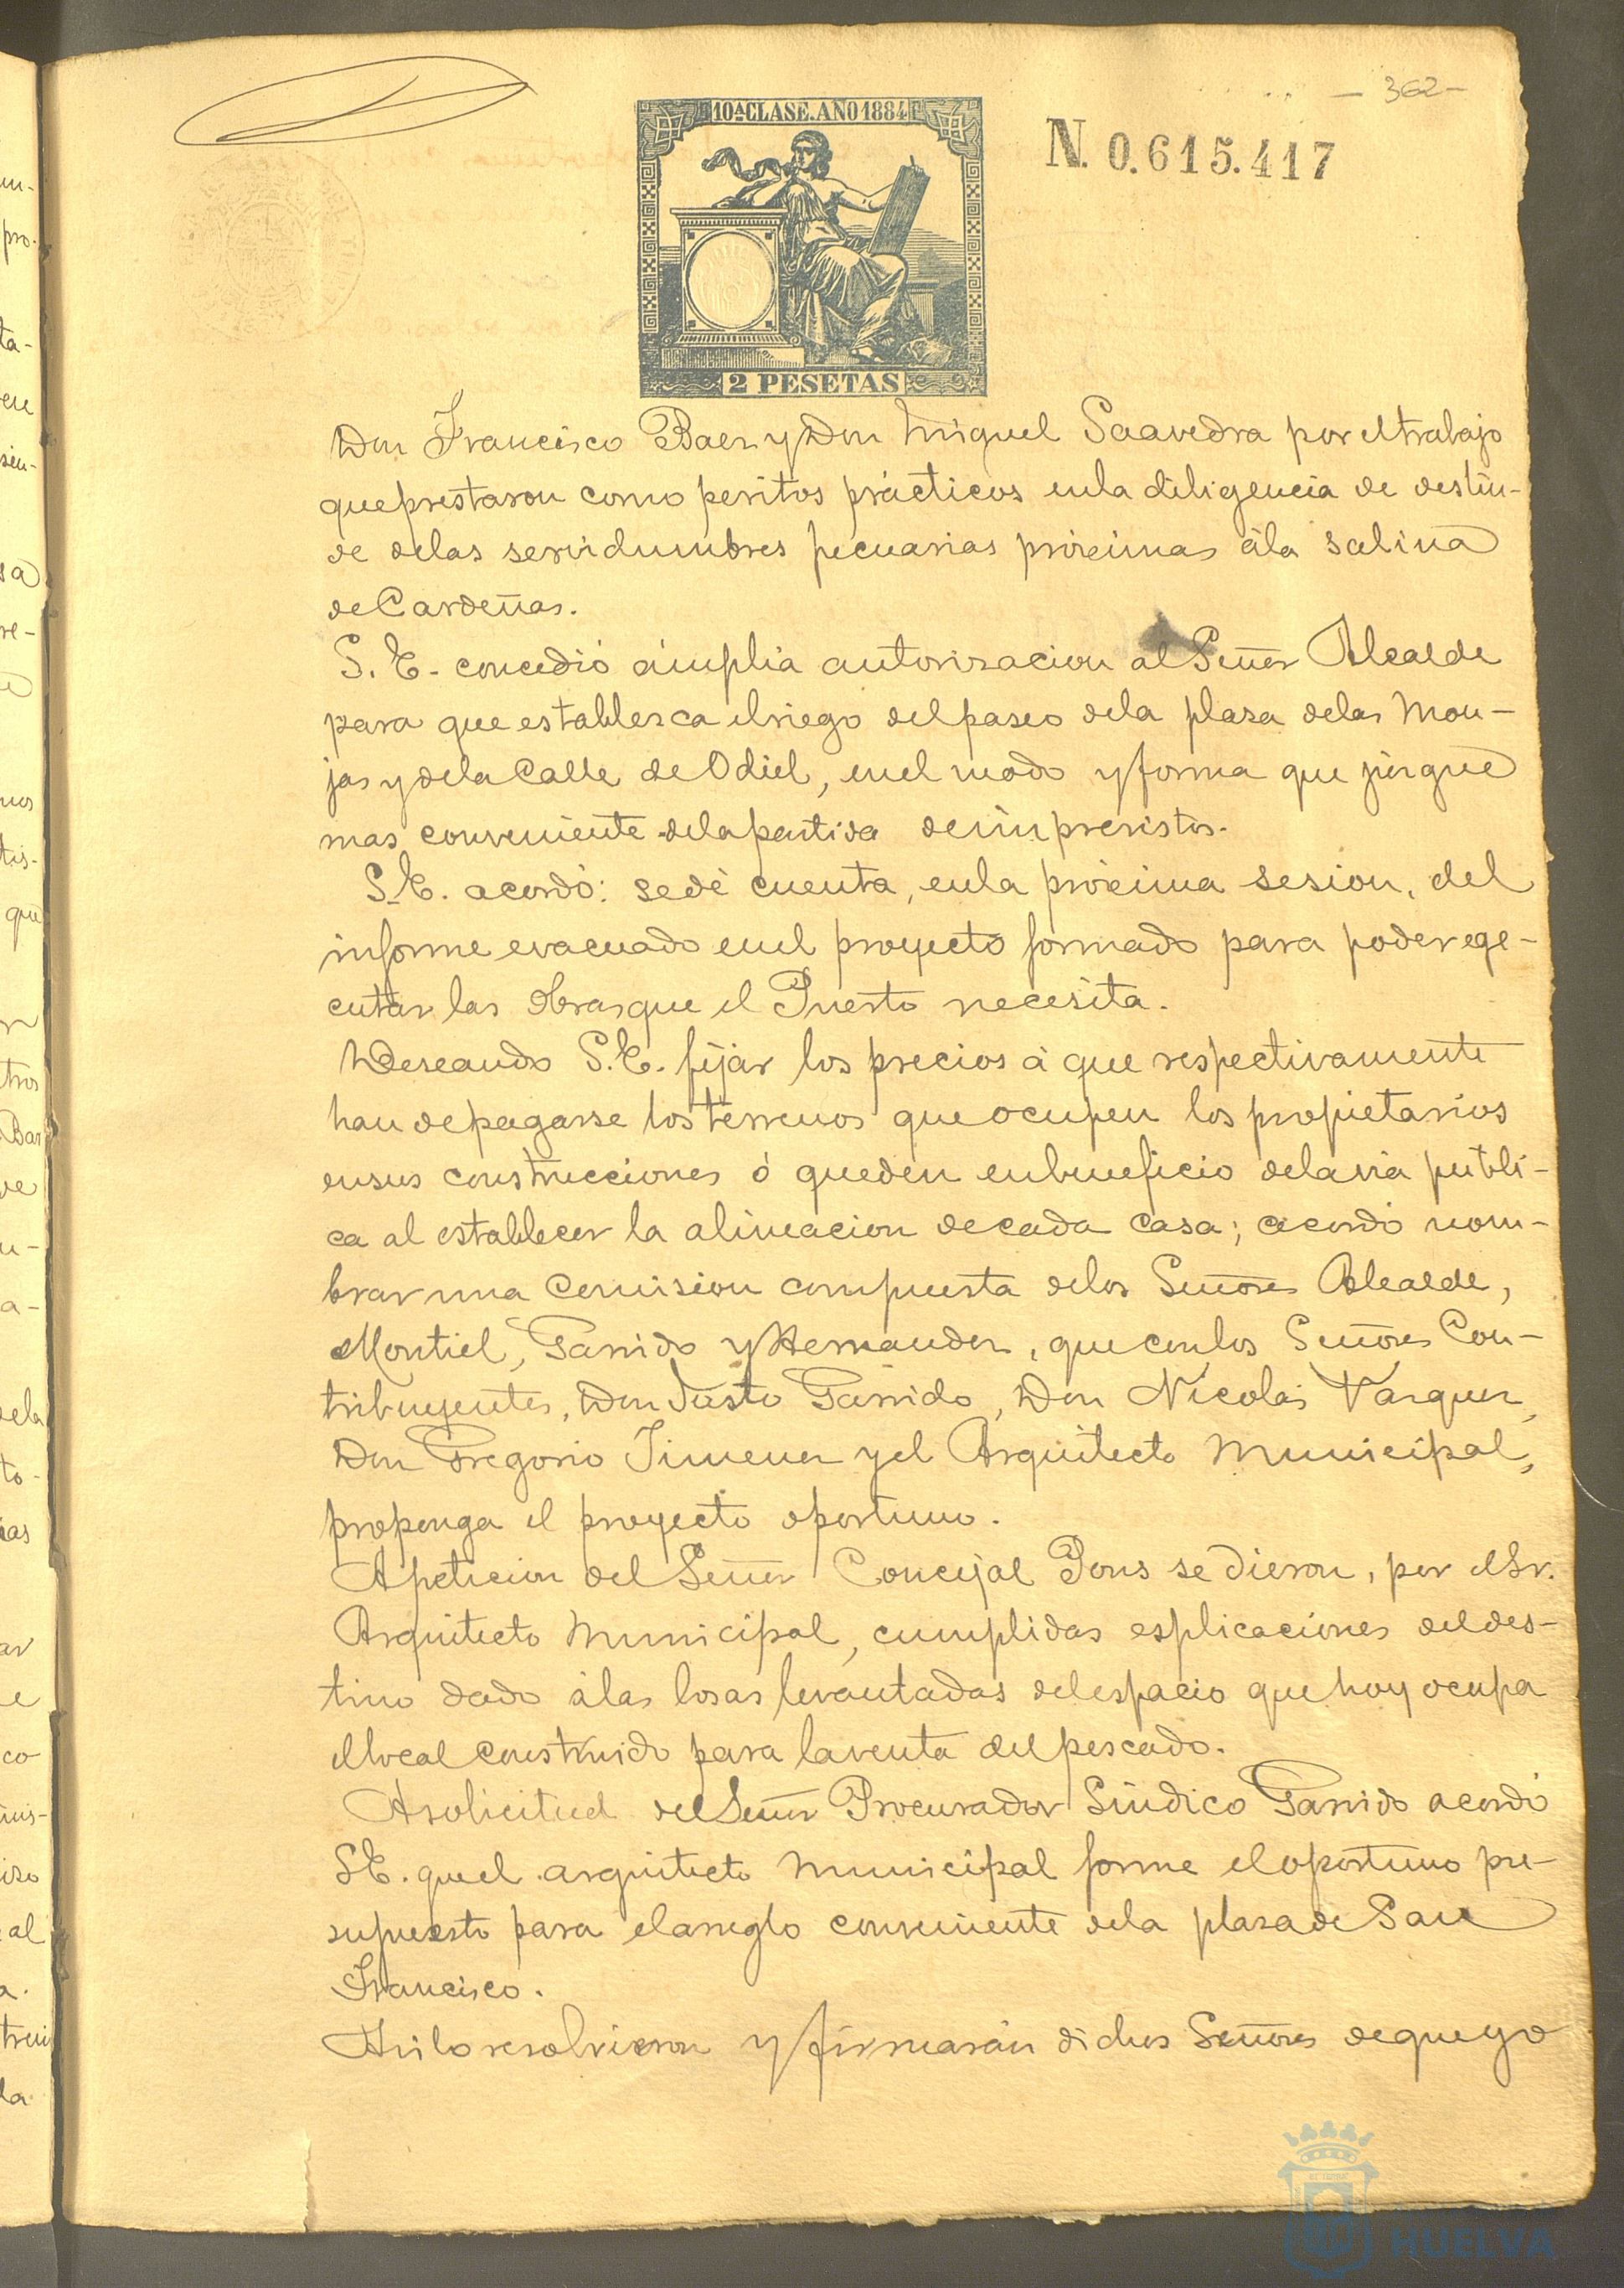 - 362 -
10ª CLASE. AÑO 1884
N. 0.615.417
2 PESETAS
Don Francisco Baez y Don Miguel Saavedra por el trabajo
que prestaron como peritos prácticos en la diligencia de deslin-
de de las servidumbres pecuarias próximas á la salina
de Cardeñas.
S. E. concedió ámplia autorizacion al Señor Alcalde
para que establesca el riego del paseo de la plaza de las Mon-
jas y de la Calle de Odiel, en el modo y forma que júzgue
mas conveniente de la partida de imprevistos.
S. E. acordó: se dé cuenta, en la próxima sesion, del
informe evacuado en el proyecto formado para poder ege-
cutar las obras que el Puerto necesita.
Deseando S. E. fijar los precios á que respectivamente
han de pagarse los terrenos que ocupen los propietarios
en sus construcciones ó queden en beneficio de la via públi-
ca al establecer la alineacion de cada casa; acordó nom-
brar una Comision compuesta de los Señores Alcalde,
Montiel, Garrido y Hernandez, que con los Señores Con-
tribuyentes, Don Justo Garrido, Don Nicolás Vazquez,
Don Gregorio Jimenez y el Arquitecto Municipal,
proponga el proyecto oportuno.
A peticion del Señor Concejal Pons se dieron, por el Sr.
Arquitecto Municipal, cumplidas esplicaciones del des-
tino dado á las losas levantadas del espacio que hoy ocupa
el local construido para la venta del pescado.
A solicitud del Señor Procurador Síndico Garrido acordó
S. E. que el arquitecto Municipal forme el oportuno pre-
supuesto para el arreglo conveniente de la plaza de San
Francisco.
Asi lo resolvieron y firmarán dichos Señores de que yo
HUELVA